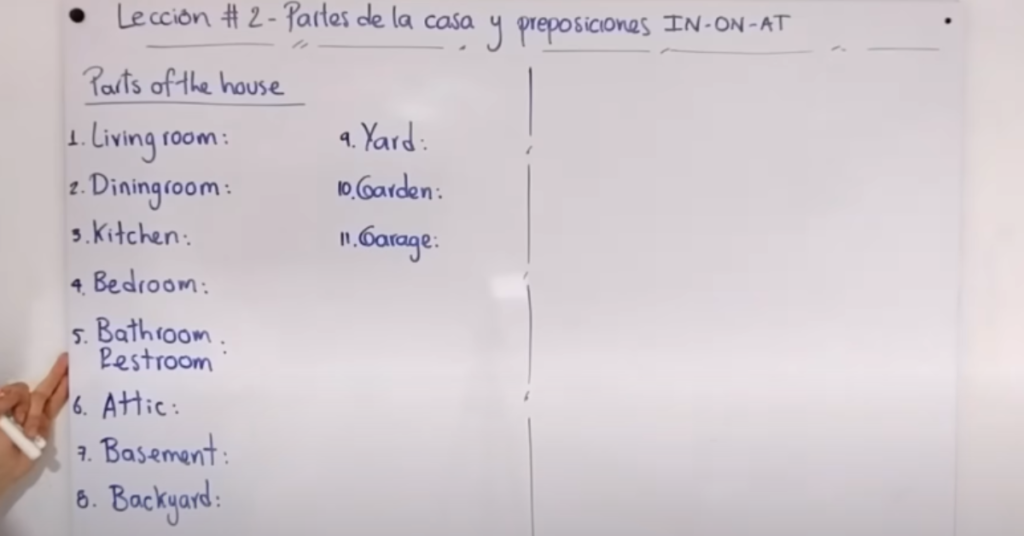 Lección # 2 - Partes de la casa y preposiciones IN-ON-AT
Parts of the house
1. Living room:
2. Diningroom:
3. Kitchen:
4. Bedroom:
5. Bathroom :
Restroom
6. Attic:
7. Basement:
8. Backyard:
9. Yard:
10. Garden:
11. Garage: